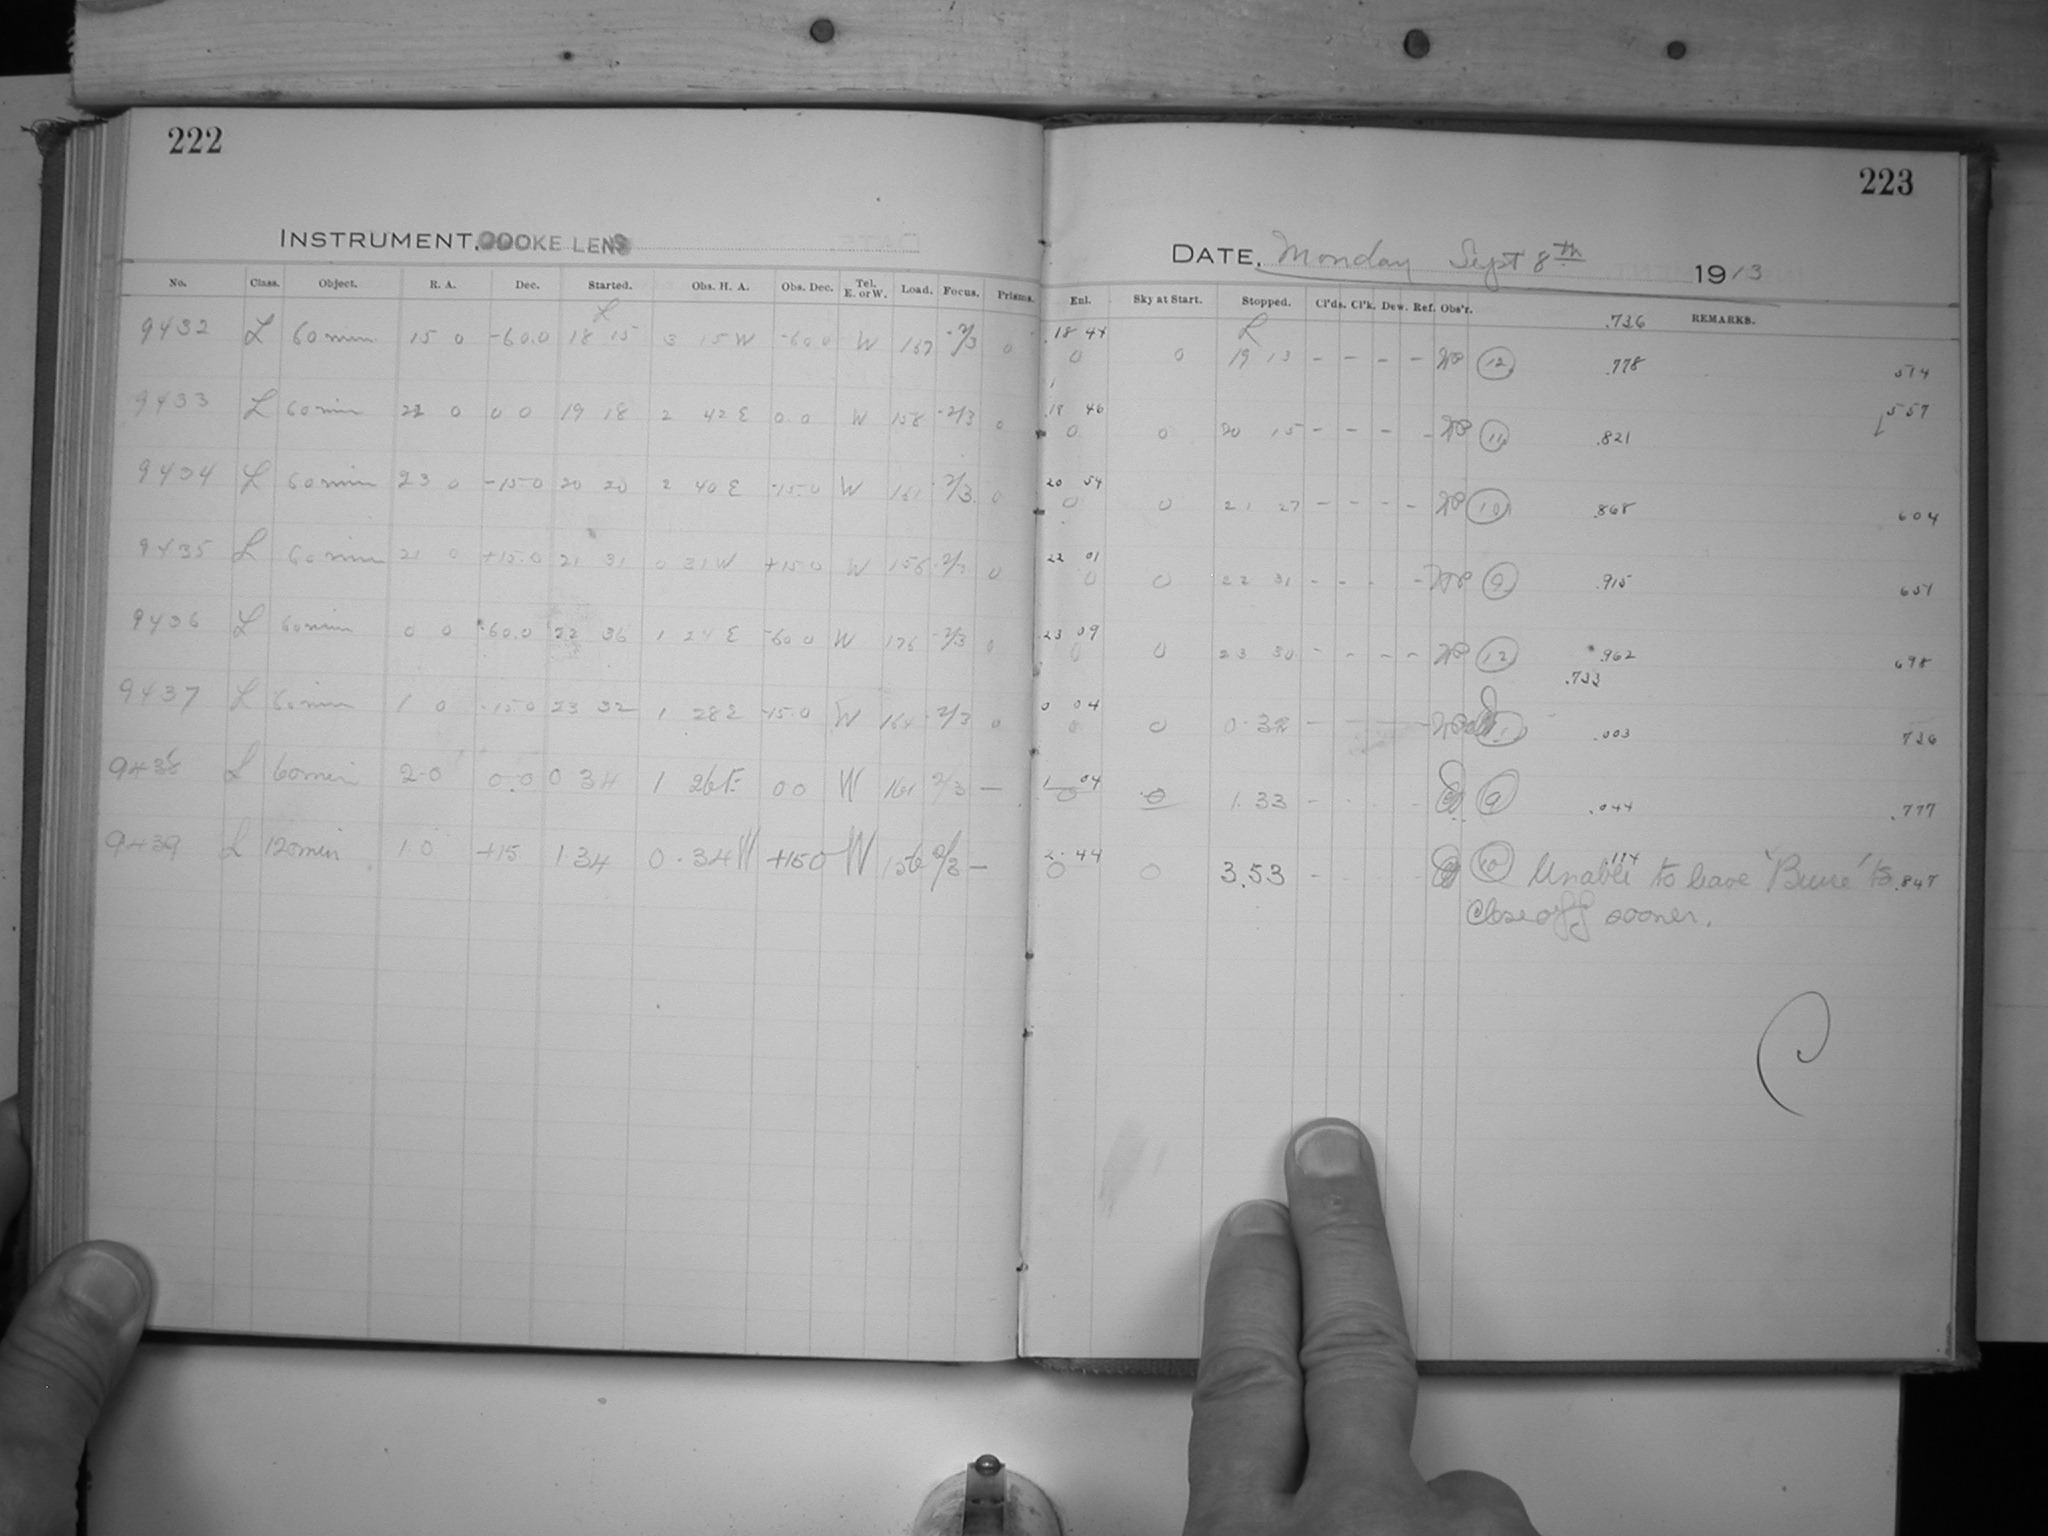 222
INSTRUMENT. COOKE LENS
No. Class. Object. R. A. Dec. Started. Obs. H. A. Obs. Dec. Tel. E. or W. Load. Focus. Prisms.
L
9432 L 60 min 15 0 -60.0 18 15 3 15 W -60.0 W 167 -2/3 0
9433 L 60 min 21 0 0 0 19 18 2 42 E 0.0 W 158 -2/3 0
9434 L 60 min 23 0 -15.0 20 20 2 40 E -15.0 W 161 -2/3 0
9435 L 60 min 21 0 +15.0 21 31 0 31 W +15.0 W 156 -2/3 0
9436 L 60 min 0 0 -60.0 22 36 1 24 E -60.0 W 176 -2/3 0
9437 L 60 min 1 0 -15.0 23 32 1 28 E -15.0 W 164 -2/3 0
9438 L 60 min 2.0 0.0 0 34 1 26 E 0 0 W 161 2/3 —
9439 L 120 min 1.0 +15 1.34 0.34 W +15 0 W 156 2/3 —
223
DATE. Monday Sept 8th 1913
Enl. Sky at Start. Stopped. Cl'ds. Cl'k. Dew. Ref. Obs'r. REMARKS.
.736
18 44 L
0 0 19 13 - - - - 12 .778 514
18 46 557
0 0 20 15 - - - - 11 .821
20 54
0 0 21 27 - - - - 10 .868 604
22 01
0 0 22 31 - - - 9 .915 651
23 09
0 0 23 30 - - - - 12 .962 698
.733
0 04
0 0 0.32 - - .003 736
1 04
0 0 1.33 - - - - 9 .044 .777
2.44 .114
0 0 3.53 - - - - 10 Unable to leave "Bruce" to .847
close off sooner.